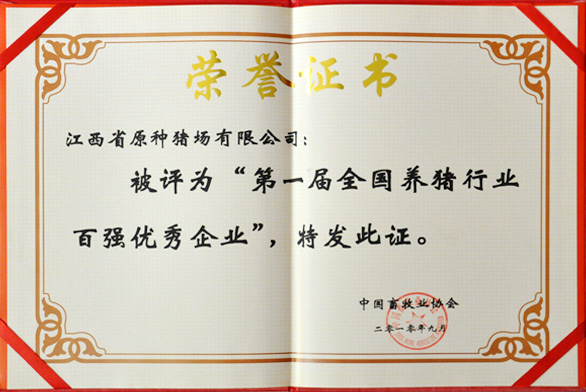 荣誉证书
江西省原种猪场有限公司：
被评为“第一届全国养猪行业
百强优秀企业”，特发此证。
中国畜牧业协会
二零一零年九月